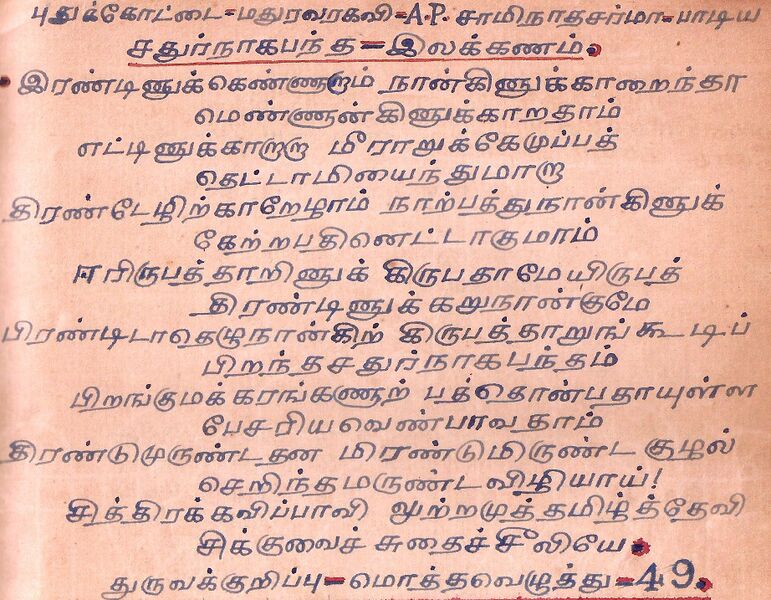 புதுக்கோட்டை=மதுரவரகவி=A.P. சாமிநாதசர்மா=பாடிய
சதுர்நாகபந்த=இலக்கணம்.
இரண்டினுக்கெண்ணூறாம் நான்கினுக்காறைந்தா
மெண்ணான்கினுக்காறதாம்
எட்டினுக்காறாறு மீராறுக்கேமுப்பத்
தெட்டாமியைந்துமாறு
திரண்டேழிற்காறேழாம் நாற்பத்துநான்கினுக்
கேற்றபதினெட்டாகுமாம்
ஈரிருபத்தாறினுக் கிருபதாமேயிருபத்
திரண்டினுக்கறுநான்குமே
பிரண்டிடாதெழுநான்கிற் கிருபத்தாறுங்கூடிப்
பிறந்தசதுர்நாகபந்தம்
பிறங்குமக்கரங்கணாற் பத்தொன்பதாயுள்ள
பேசரியவெண்பாவதாம்
திரண்டுமுருண்டதன மிரண்டுமிருண்ட சூழல்
செறிந்தமருண்டவிழியாய்!
சித்திரக்கவிப்பாவி லூற்றமுத்தமிழ்த்தேவி
சிக்குவைச் சுதைச்சீலியே.
துருவக்குறிப்பு=மொத்தவெழுத்து=49.